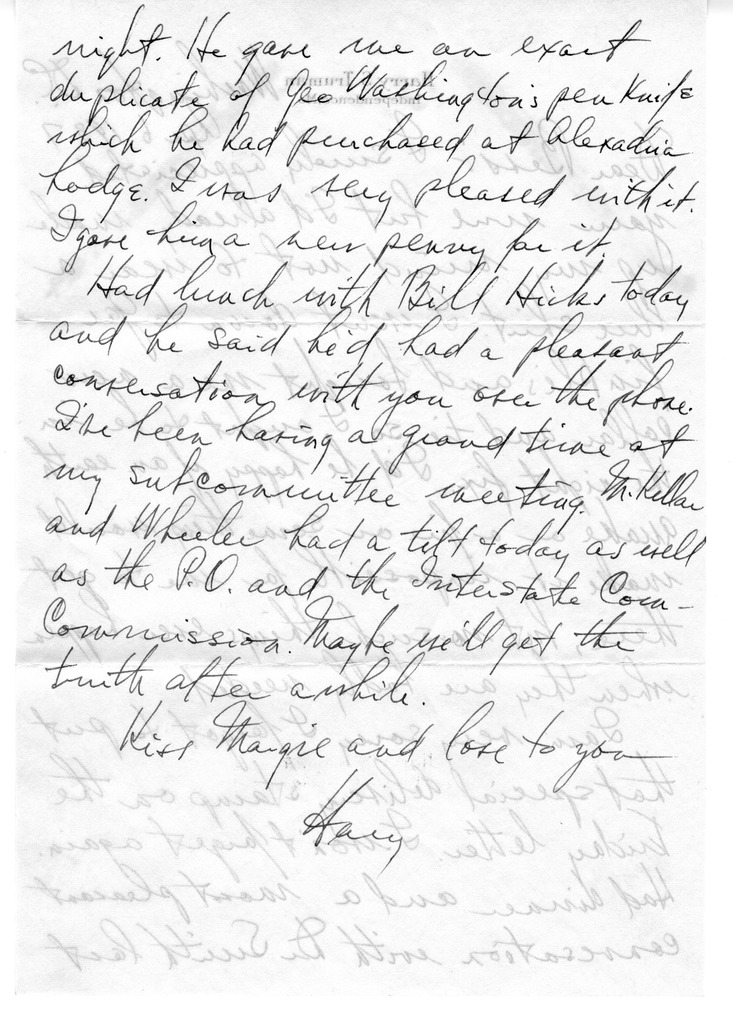 night. He gave me an exact
duplicate of Geo Washington's pen Knife
which he had purchased at Alexadria
Lodge. I was very pleased with it.
I gave him a new penny for it.
Had lunch with Bill Hicks today
and he said he'd had a pleasant
conversation with you over the phone.
I've been having a grand time at
my subcommittee meeting. McKellar
and Wheeler had a tilt today as well
as the P.O. and the Interstate Com-
Commission. Maybe we'll get the
truth after awhile.
Kiss Margie and love to you
Harry